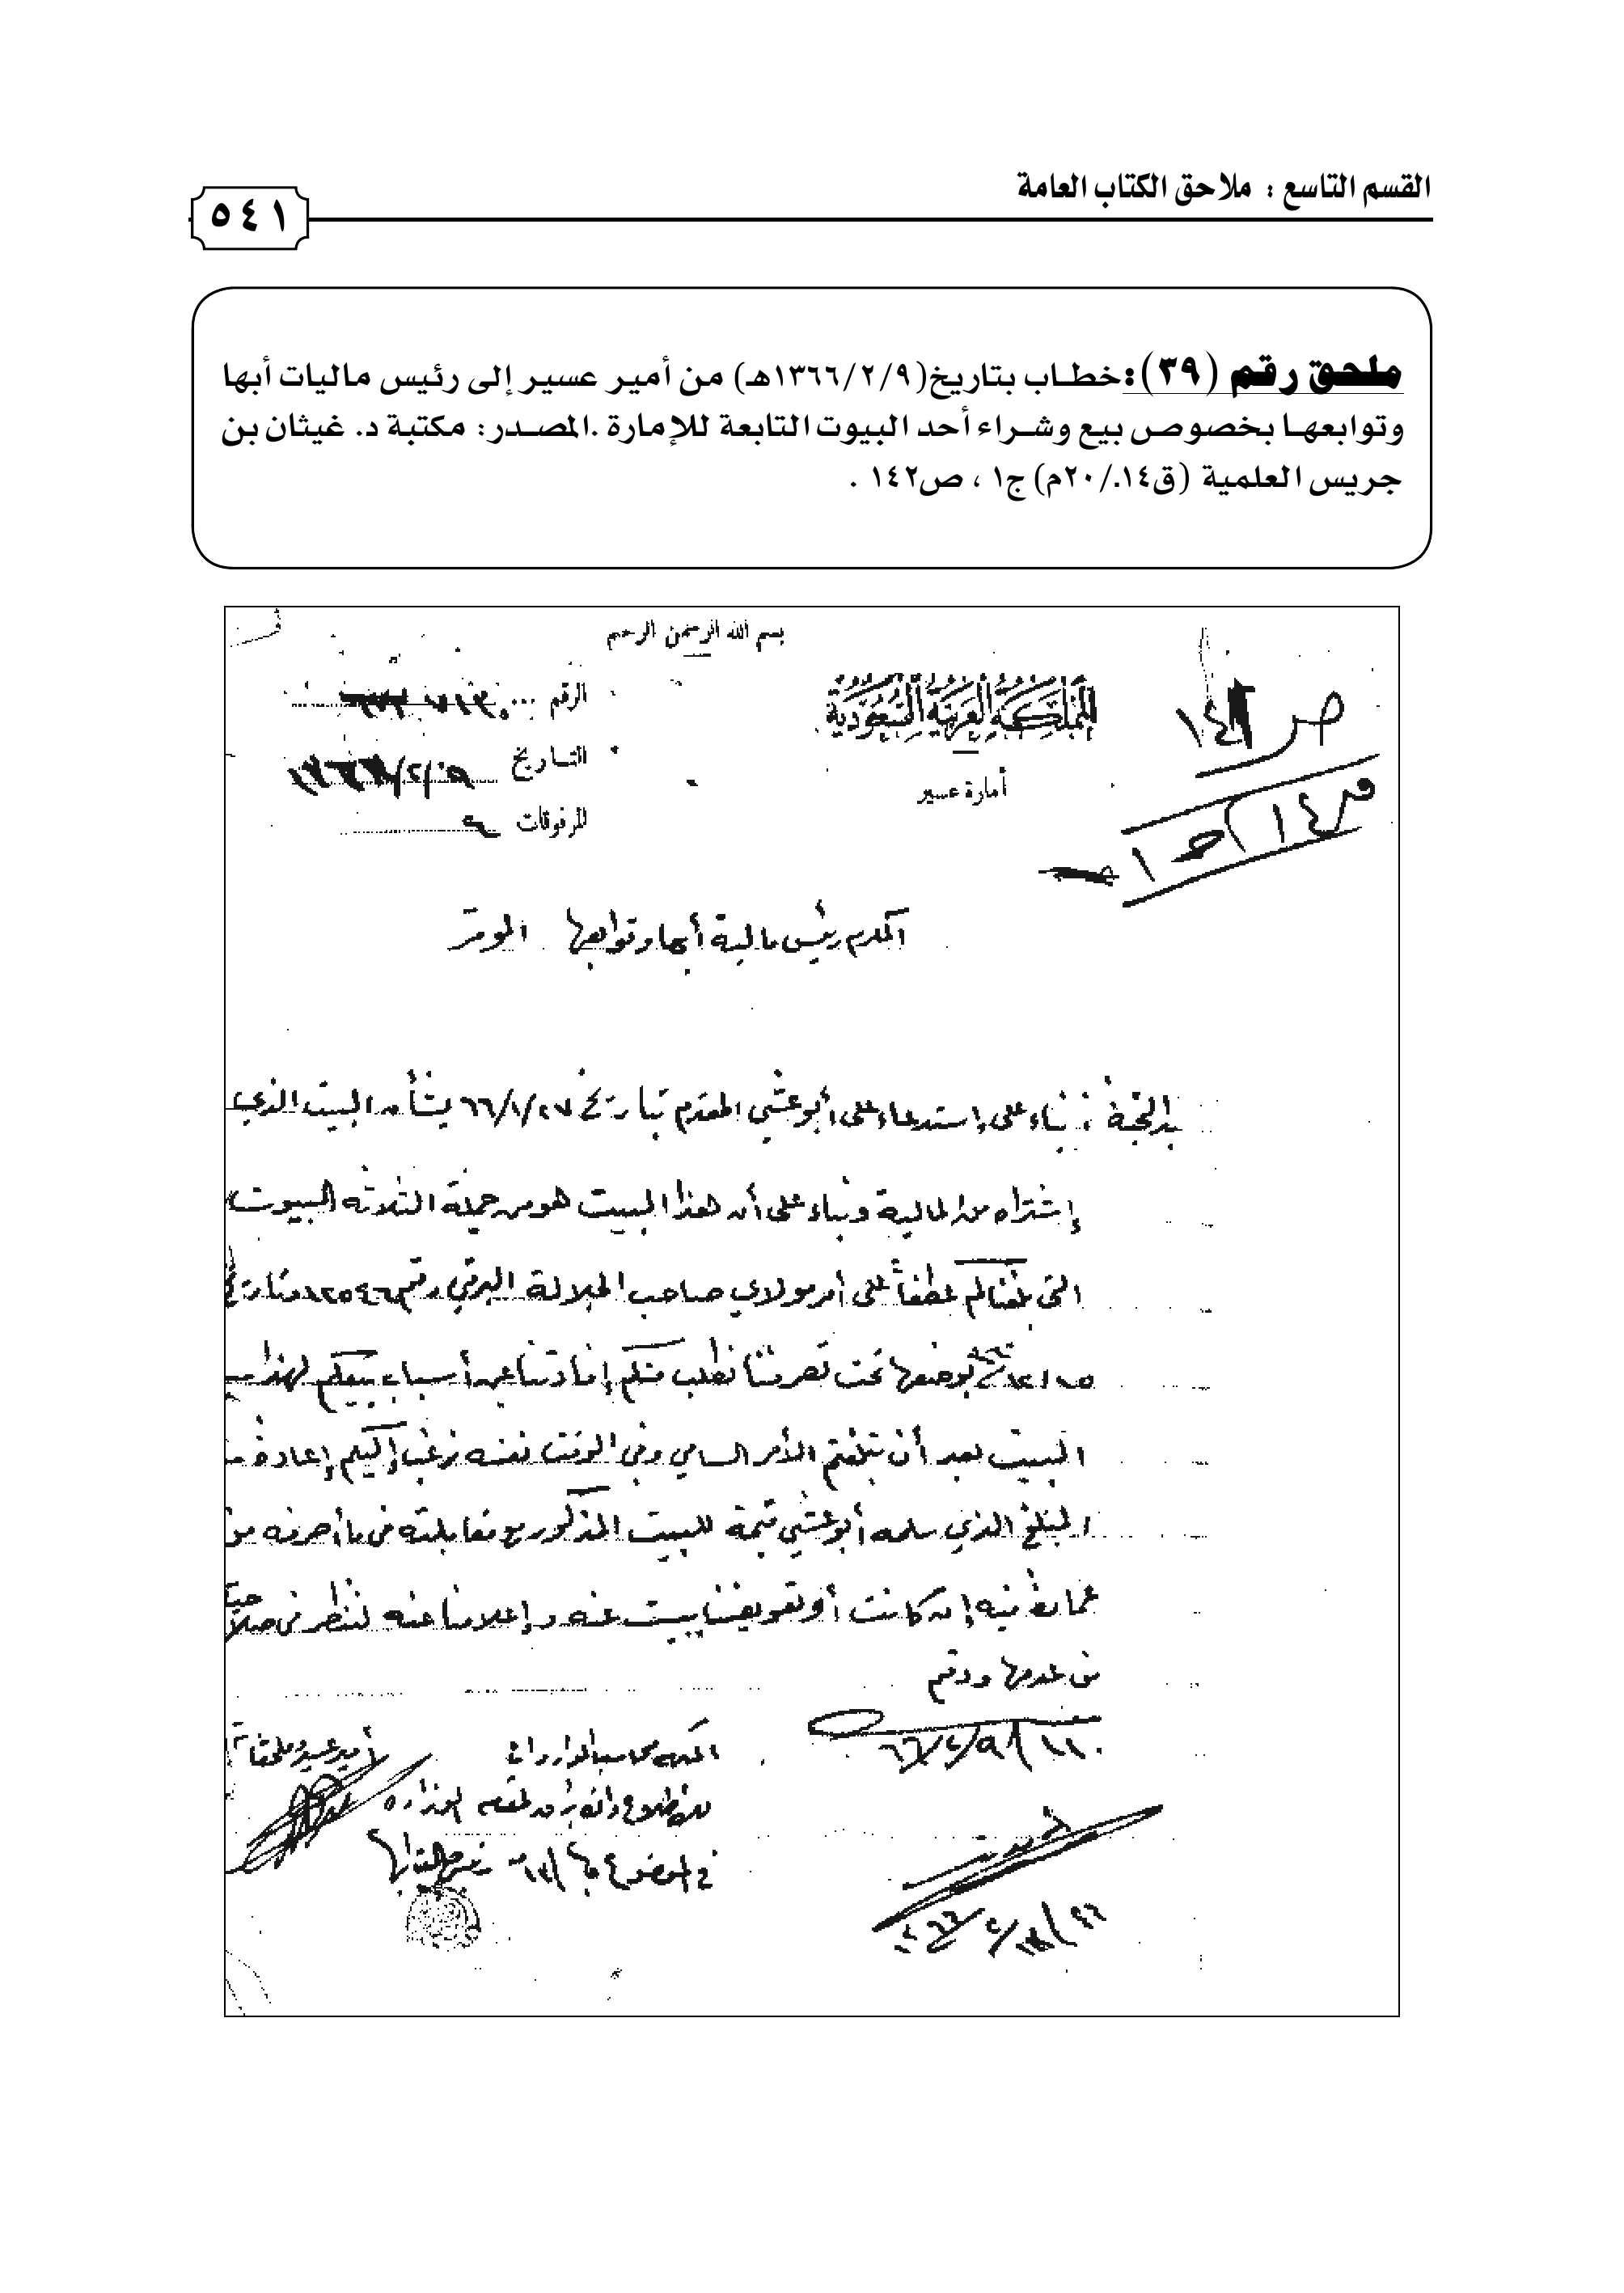 القسم التاسع : ملاحق الكتاب العامة
٥٤١
ملحق رقم (٣٩): خطاب بتاريخ(١٣٦٦/٢/٩هـ) من أمير عسير إلى رئيس ماليات أبها
وتوابعها بخصوص بيع وشراء أحد البيوت التابعة للإمارة .المصدر: مكتبة د. غيثان بن
جريس العلمية (ق١٤./٢٠م) ج١ ، ص١٤٢ .
بسم الله الرحمن الرحيم
المملكة العربية السعودية
أمارة عسير
الرقم
التاريخ
المرفوقات
ص ١٤٢
ق ١٤) ج ١
المكرم رئيس مالية أبها وتوابعها الموقر
بعد التحية : بناء على إستدعاء على أبو عشي المقدم بتاريخ ٦٦/١/٢٧ بشأن البيت الذي
إشتراه من المالية وبناء على أن هذا البيت هو من جملة الثلاثة البيوت
التي بلغناكم عطفاً على أمر مولاي صاحب الجلالة البرقي رقم ١٢٥٤٦ وتاريخ
بوضعها تحت تصرفنا نطلب منكم إفادتنا عن أسباب بيعكم لهذا
البيت بعد أن تبلغتم الأمر السامي وفي الوقت نفسه نرغب إليكم إعادة
المبلغ الذي سلمه أبو عشي قيمة للبيت المذكور مع مقابلته في ما أصرفه من
عمارة فيه إن كانت أو تعويضنا ببيت عنه وإعلامنا عنه لننظر في صلاحيته
من عدمها ودمتم
أمير عسير وملحقاتها